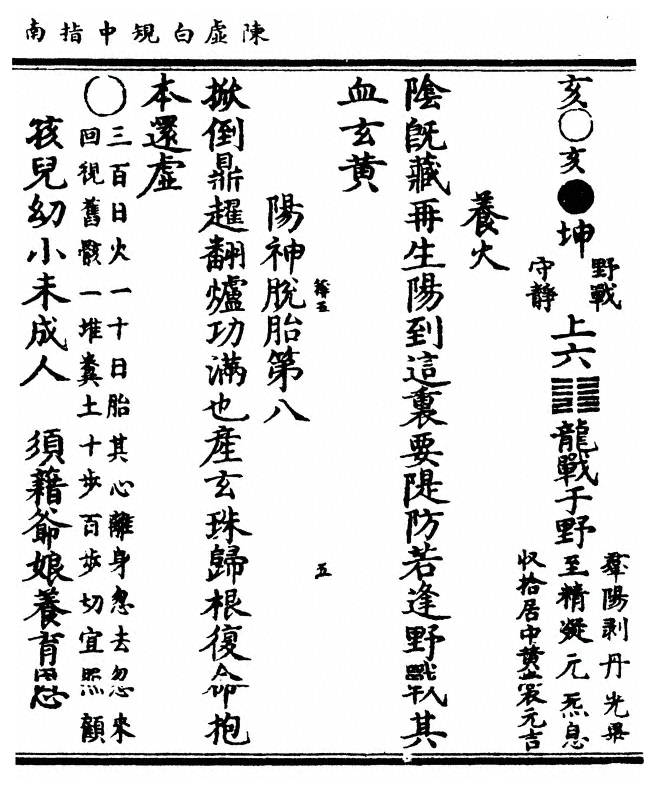 陳虛白規中指南
亥○亥●坤
野戰
守靜
上六䷁龍戰于野
羣陽剥丹光畢
至精凝元炁息
収拾居中黄裳元吉
養火
陰旣藏再生陽到這裏要隄防若逢野戰其
血玄黄
陽神脫胎第八
五
掀倒鼎趯翻爐功滿也產玄珠歸根復命抱
本還虛
○
三百日火一十日胎其心離身忽去忽來
回視舊骸一堆糞土十步百步切宜照顧
孩兒幼小未成人　須藉爺娘養育恩